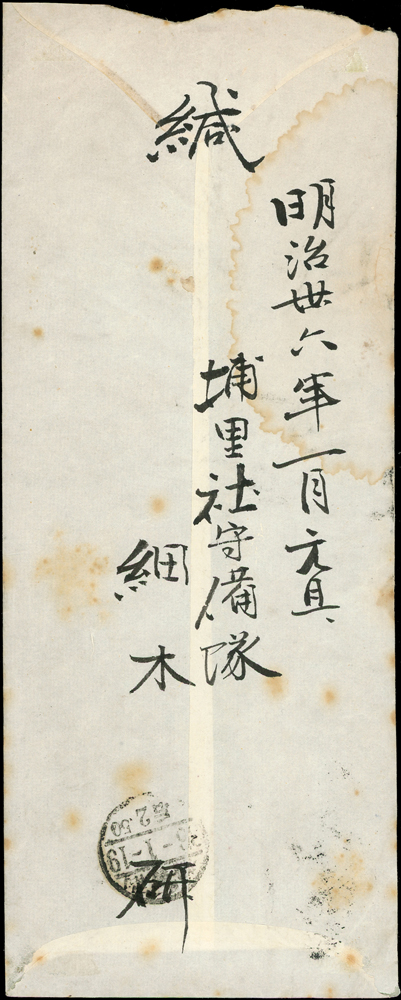 緘
明治卅六年一月元旦
埔里社守備隊
細木
研
36-1-19
2.50